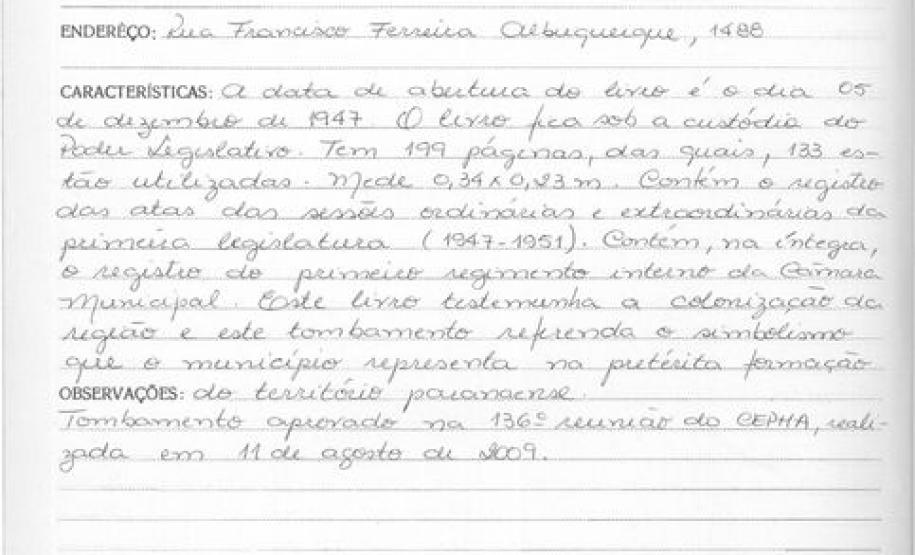 ENDERÊÇO: Rua Francisco Ferreira Albuquerque, 1488
CARACTERÍSTICAS: A data de abertura do livro é o dia 05
de dezembro de 1947. O livro fica sob a custódia do
Poder Legislativo. Tem 199 páginas, das quais, 133 es-
tão utilizadas. Mede 0,34 x 0,23 m. Contém o registro
das atas das sessões ordinárias e extraordinárias da
primeira legislatura (1947-1951). Contém, na íntegra,
o registro do primeiro regimento interno da Câmara
Municipal. Este livro testemunha a colonização da
região e este tombamento referenda o simbolismo
que o município representa na pretérita formação
OBSERVAÇÕES: do território paranaense.
Tombamento aprovado na 136º reunião do CEPHA, reali-
zada em 11 de agosto de 2009.